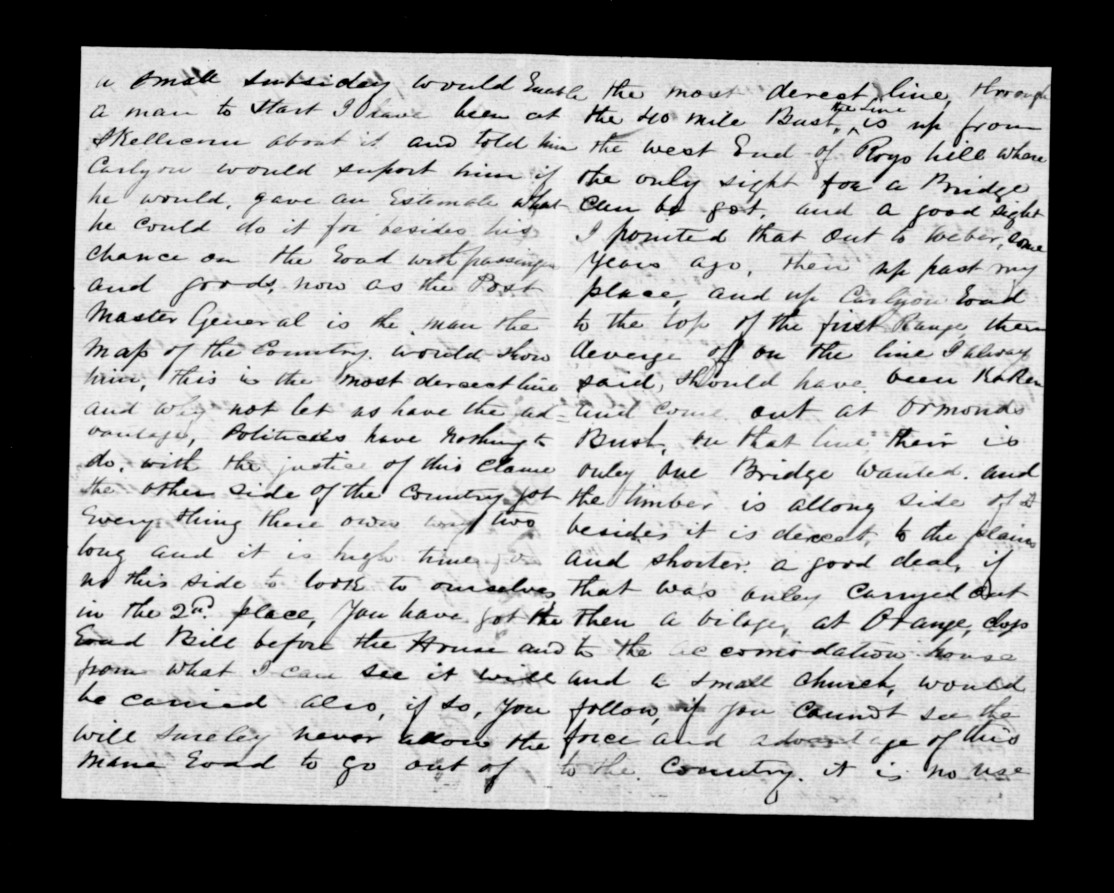 a small subsiday would Enable
a man to start I have been at
Skellicorn about it and told him
Carlyon would suport him if
he would, gave an Estemate what
he could do it for besides his
chance on the Road with passenger
and goods, now as the Post
Master General is the man the
map of the Country. would show
him, this is the most derect line
and why not let us have the ad-
vantage, Politicks have nothing to
do, with the justice of this Claime
the other side of the Country got
Every thing there own way two
long and it is high time for
us this side to look to ourselves
in the 2nd. place, You have got the
Road Bill before the House and
from what I can see it will
be carried also, if so, you
will sureley never allow the
mane Road to go out of
the most derect line, through
the 40 mile Bush, ^ is up from
the line
the west End of Roys hill where
the only sight for a Bridge
Can be got. and a good sight
I pointed that out to Weber, some
Years ago, then up past my
place, and up Carlyon Road
to the top of the first Range then
deverge of on the line I always
said, should have been taken
and come out at Ormonds
Bush, on that line, their is
onley one Bridge wanted. and
the timber is allong side of it
besides it is dereect, to the plains
and shorter. a good deal, if
that was onley Carryed out
then a vilage, at Orange,
to the accomodation house
and a small church, would
follow, if you cannot see the
force and advantage of this
to the. Country. it is no use